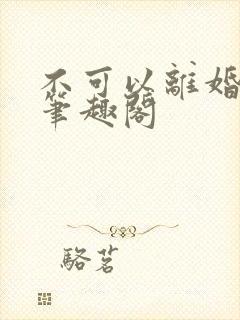 不可以離婚
筆趣閣
駱茗